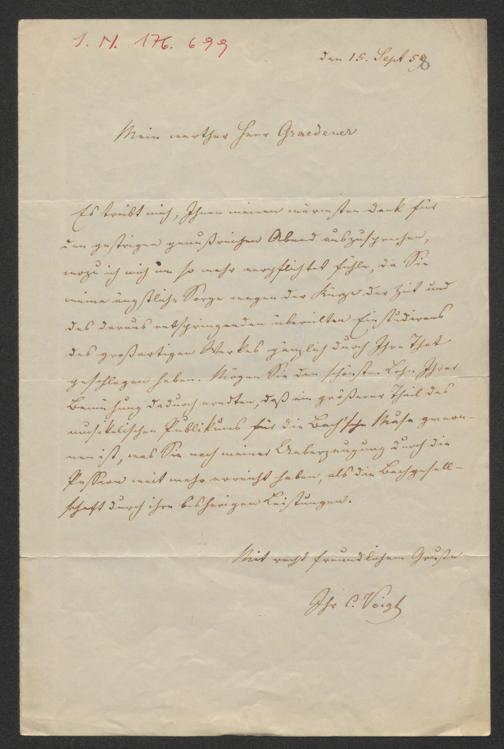 I. N. 176.699
den 15. Sept 58
Mein werther Herr Graedener
Es treibt mich, Ihnen meinen wärmsten Dank für
den gestrigen genußreichen Abend auszusprechen,
wozu ich mich um so mehr verpflichtet fühle, da Sie
meine ängstliche Sorge wegen der Kürze der Zeit und
des daraus entspringenden übereilten Einstudirens
des großartigen Werkes gänzlich durch Ihre That
geschlagen haben. Mögen Sie den schönsten Lohn Ihrer
Bemühung dadurch erndten, daß ein größerer Theil des
musikalischen Publikums für die Bach'sche Muse gewon-
nen ist, was Sie nach meiner Ueberzeugung durch die
Passion weit mehr erreicht haben, als die Bachgesell-
schaft durch ihre bisherigen Leistungen.
Mit recht freundlichem Gruße
Ihr C. Voigt